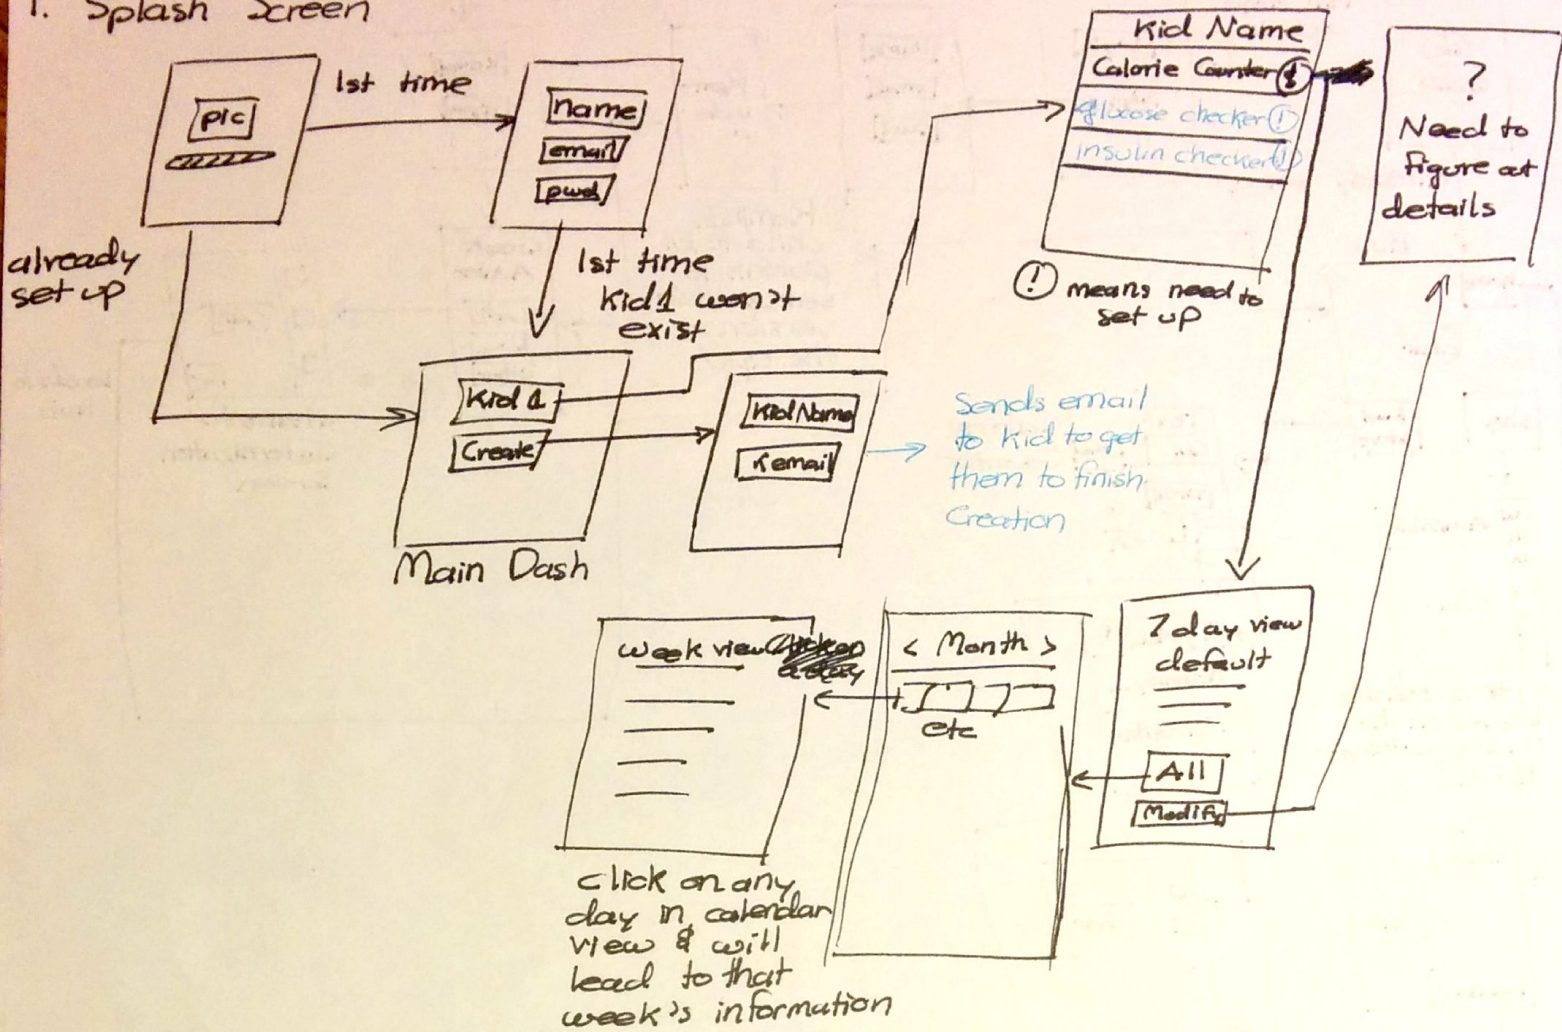 1. Splash Screen
pic
1st time
name
email
pwd
already
set up
1st time
Kid 1 won't
exist
Kid 1
Create
Main Dash
Kid Name
K email
Sends email
to Kid to get
them to finish
Creation
Kid Name
Calorie Counter !
glucose checker !
insulin checker !
! means need to
set up
?
Need to
figure out
details
7 day view
default
All
Modify
< Month >
etc
week view
click on any
day in calendar
view & will
lead to that
week's information